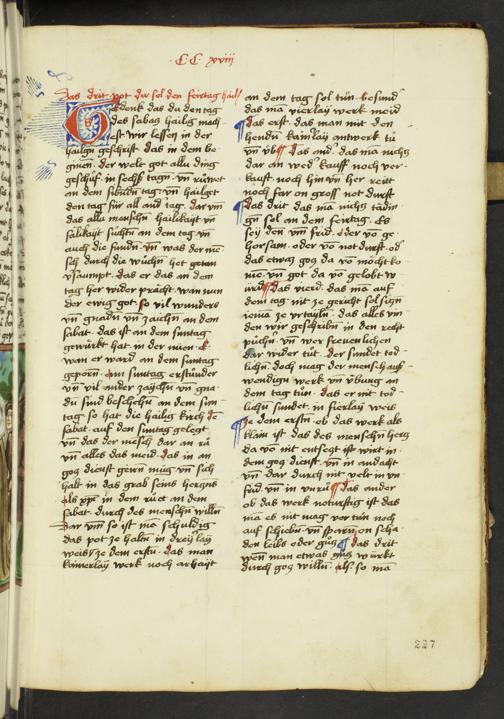 CC xviij
Das drit pot du sol den feirtag hail
Gedenk das du den tag
des sabatz hailig mach
est wir lessen in der
hailgn geschrift das in dem be
ginen der welt got allu ding
geschuf in sechs tagn vn ruwet
an dem sibndn tag vn hailget
den tag fur all and tag dar vm
das allu menschn hailikait vn
salikait suchn an dem tag vn
auch die fundn vn was der me
sch durch die wuchn het getan
vsaumpt das er das an dem
tag her wider pracht wan nun
der ewig got so vil wunders
vn gnadn vn zaichn an dem
sabat das ist an dem suntag
gewurkt hat in der nuen e
wan er ward an dem suntag
geporn am suntag erstunder
vn vil ander zaychn vn gna
du sind beschehn an dem sun
tag so hat die hailig kirch de
sabat auf den suntag gelegt
vn das der mesch dar an ru
vn alles das meid das in an
gotz dienst geirn mug vn sich
halt in das grab seins hertzns
als xps in dem ruet an dem
sabat durch des menschn willn
Dar vm so ist me schuldig
das pot ze haltn in dreylay
weis ze dem erstn das man
kainerlay werk noch arbayt
an dem tag sol tun besund
das ma vierlay werk meid
das erst das man mit den
hendn kainlay antwerk tu
vn vb das and das ma nichtz
dar an wed kauff noch ver
kauff noch hin vn her reit
noch far on gross not durft
das drit das ma nichtz tadin
gn sol an dem feirtag Es
sey den vm frid oder vo ge
horsam oder vo not durft od
das etwaz gotz da vo mocht ko
me vn got da vo gelobt w
urd das vierd das ma auf
dem tag nit ze gericht sol sitzn
iema ze vrtayln das alles vin
den wir geschribn in den recht
puchn vn wer freuenlichen
dar wider tut der sundet tod
lichn doch mag der mensch auss
wendigu werk vn vbung an
dem tag tun das er nit tod
lichn sundet in fierlay weis
Ze dem erstn ob das werk als
klain ist das des menschn hertz
da vo nit entsegt ist wirt in
dem gotz dienst vn in andacht
vn dar durch nit velt in vn
frid vn in vnru das ander
ob das werk noturftig ist das
ma es nit mag vor tun noch
auf schiebn vn sparn on scha
den leibs oder gutz das drit
wen man etwas gutz wurkt
durch gotz willn als so ma
227